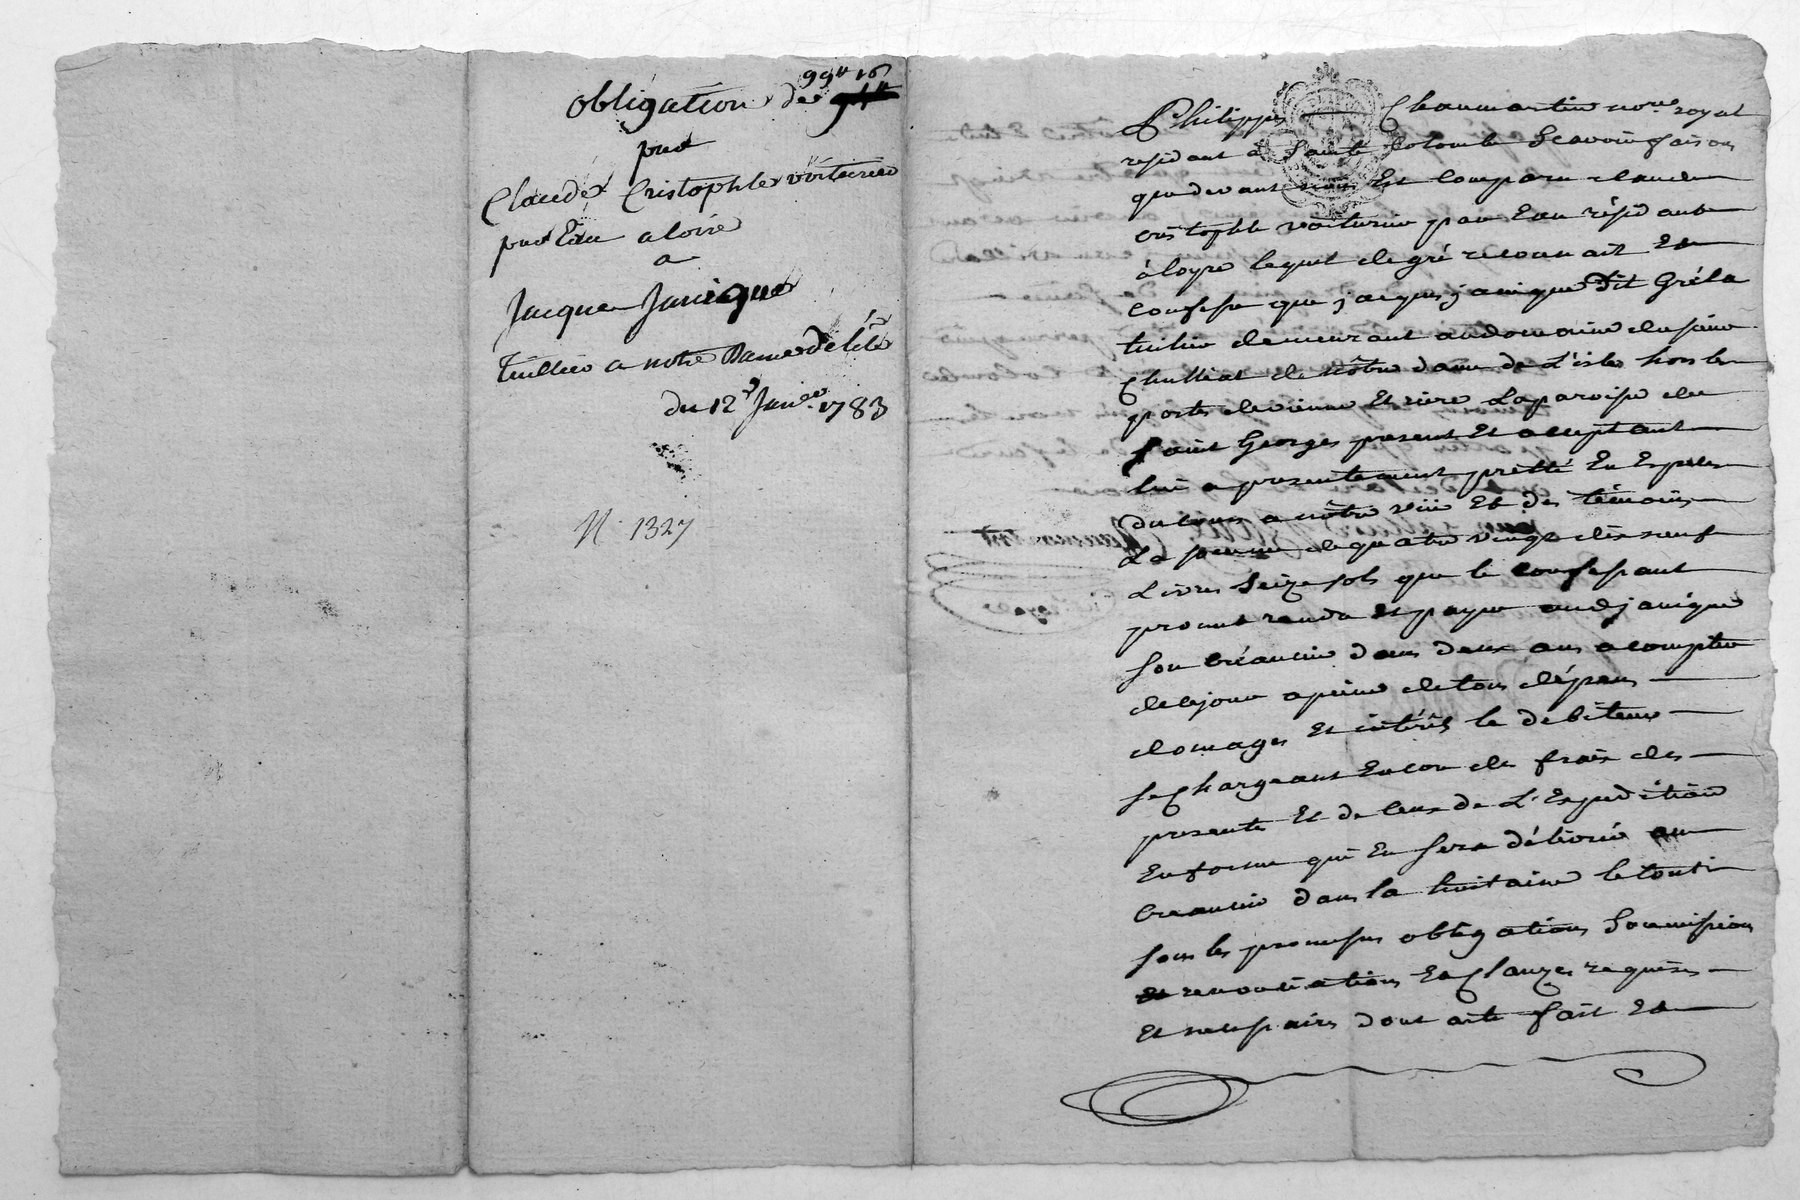 obligation de 99# 16
par
Claude Cristophle voiturier
par Eau a loire
a
Jacque Janique
Tuillier a notre Dame de l'ile
du 12e Janvier 1783
N. 1327
Philippe Chaumartin nore royal
residant à Sainte Colombe Scavoir faisons
que devant nous Est comparu claude
cristophle voiturier par Eau résidant
à loyre lequel de gré reconnait Et
confesse que jacques janique dit Gréla
tuilier demeurant au domaine du sieur
Chulliat de nôtre dame de L'isle hors les
portes de vienne Et riere La paroisse de
saint Georges present Et acceptant
lui a presentement pretté En Espece
du cours a nôtre vüe Et des témoins
La somme de quatre vingt dix neuf
Livres Seize sols que le confessant
promet rendre Et payer aud janique
son créancier dans deux ans a compter
de ce jour a peine de tous dépens
domages Et intérêts le debiteur
se chargeant Encore des frais des
presentes Et de ceux de L'Expedition
En forme qui En sera délivrée au
creancier dans la huitaine le tout
sous les promesses obligations Soumissions
renonciations Et Clauzes requises
Et necessaires dont acte fait Et